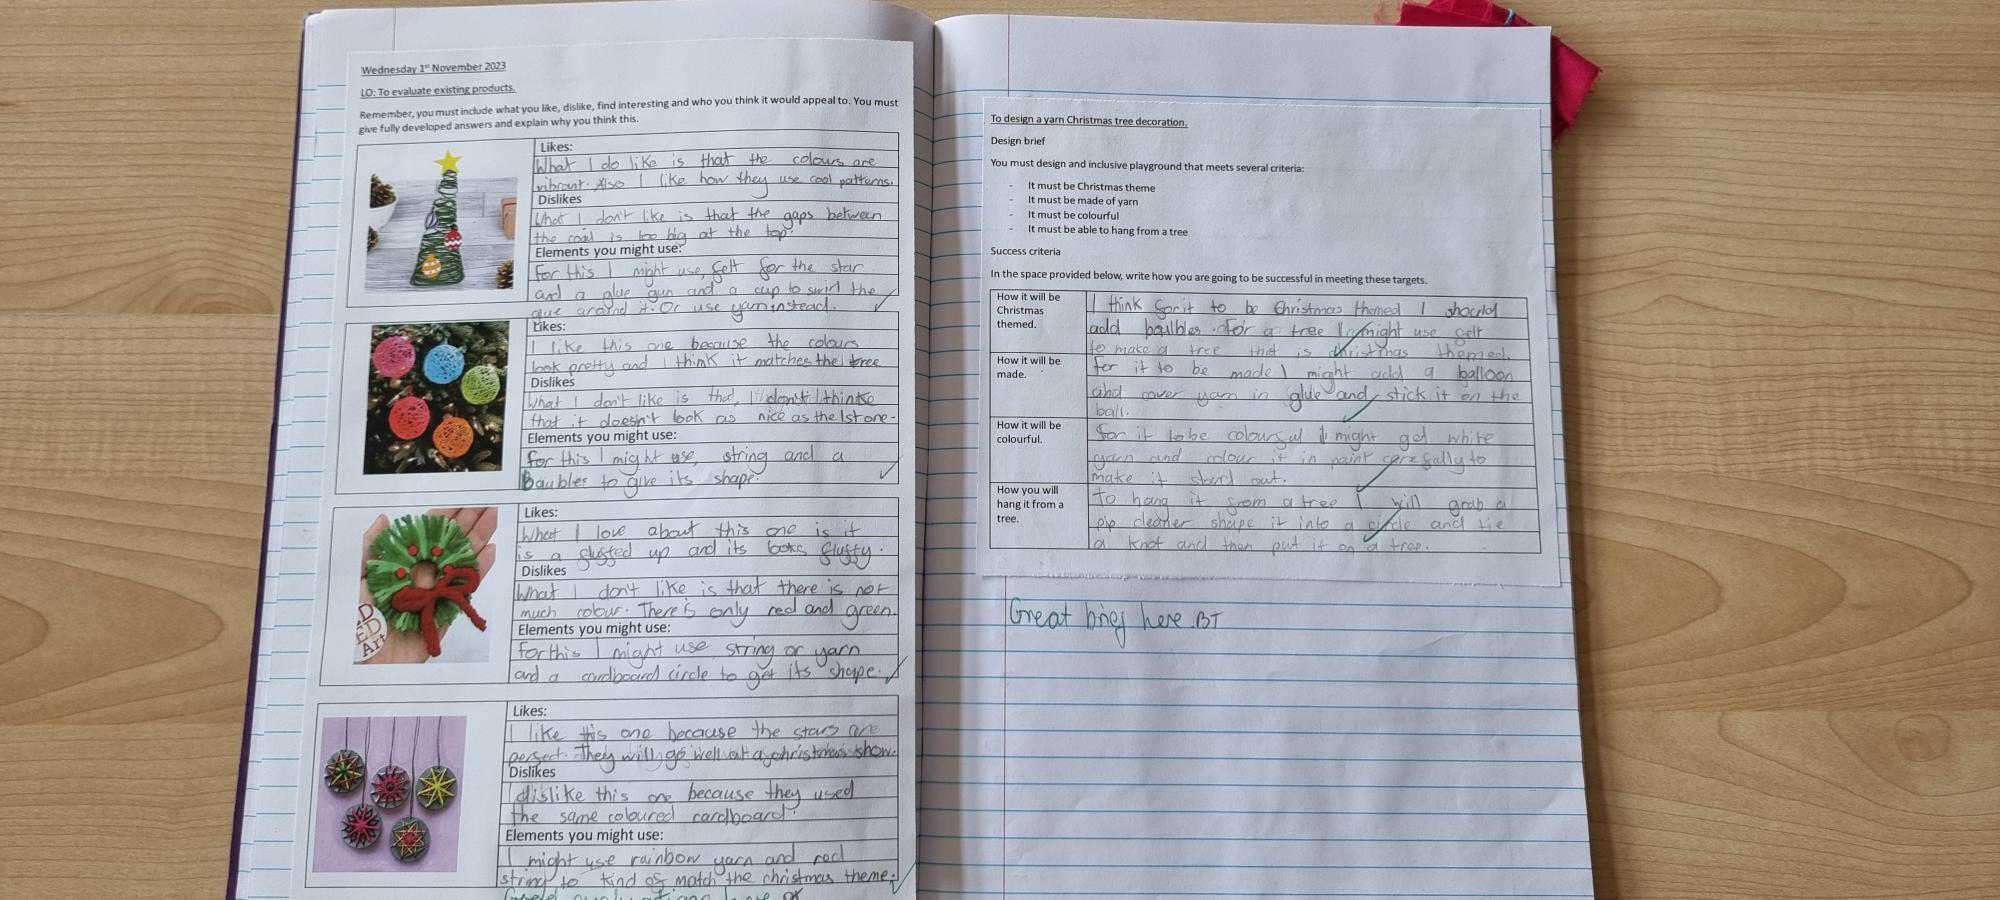 Wednesday 1st November 2023
LO: To evaluate existing products.
Remember, you must include what you like, dislike, find interesting and who you think it would appeal to. You must
give fully developed answers and explain why you think this.
Likes:
What I do like is that the colours are
vibrant. Also I like how they use cool patterns.
Dislikes
What I don't like is that the gaps between
the coail is too big at the top.
Elements you might use:
For this I might use, felt for the star
and a glue gun and a cup to swirl the
glue around it. Or use yarn instead.
Likes:
I like this one because the colours
look pretty and I think it matches the tree
Dislikes
What I don't like is that, I don't think
that it doesn't look as nice as the 1st one.
Elements you might use:
for this I might use, string and a
Baubles to give its shape.
Likes:
What I love about this one is it
is a fluffed up and its looks fluffy.
Dislikes
What I don't like is that there is not
much colour. There's only red and green.
Elements you might use:
For this I might use string or yarn
and a cardboard circle to get its shape.
ED
Art
Likes:
I like this one because the stars are
perfect. They will go well at a christmas show.
Dislikes
I dislike this one because they used
the same coloured cardboard.
Elements you might use:
I might use rainbow yarn and red
string to kind of match the christmas theme.
To design a yarn Christmas tree decoration.
Design brief
You must design and inclusive playground that meets several criteria:
- It must be Christmas theme
- It must be made of yarn
- It must be colourful
- It must be able to hang from a tree
Success criteria
In the space provided below, write how you are going to be successful in meeting these targets.
How it will be
Christmas
themed.
I think for it to be Christmas themed I should
add baulbles. For a tree I might use felt
to make a tree that is christmas themed.
How it will be
made.
for it to be made I might add a balloon
and cover yarn in glue and stick it on the
ball.
How it will be
colourful.
for it to be colourful I might get white
yarn and colour it in paint carefally to
make it stand out.
How you will
hang it from a
tree.
To hang it from a tree I will grab a
pip cleaner shape it into a circle and tie
a knot and then put it on a tree.
Great brief here. BT